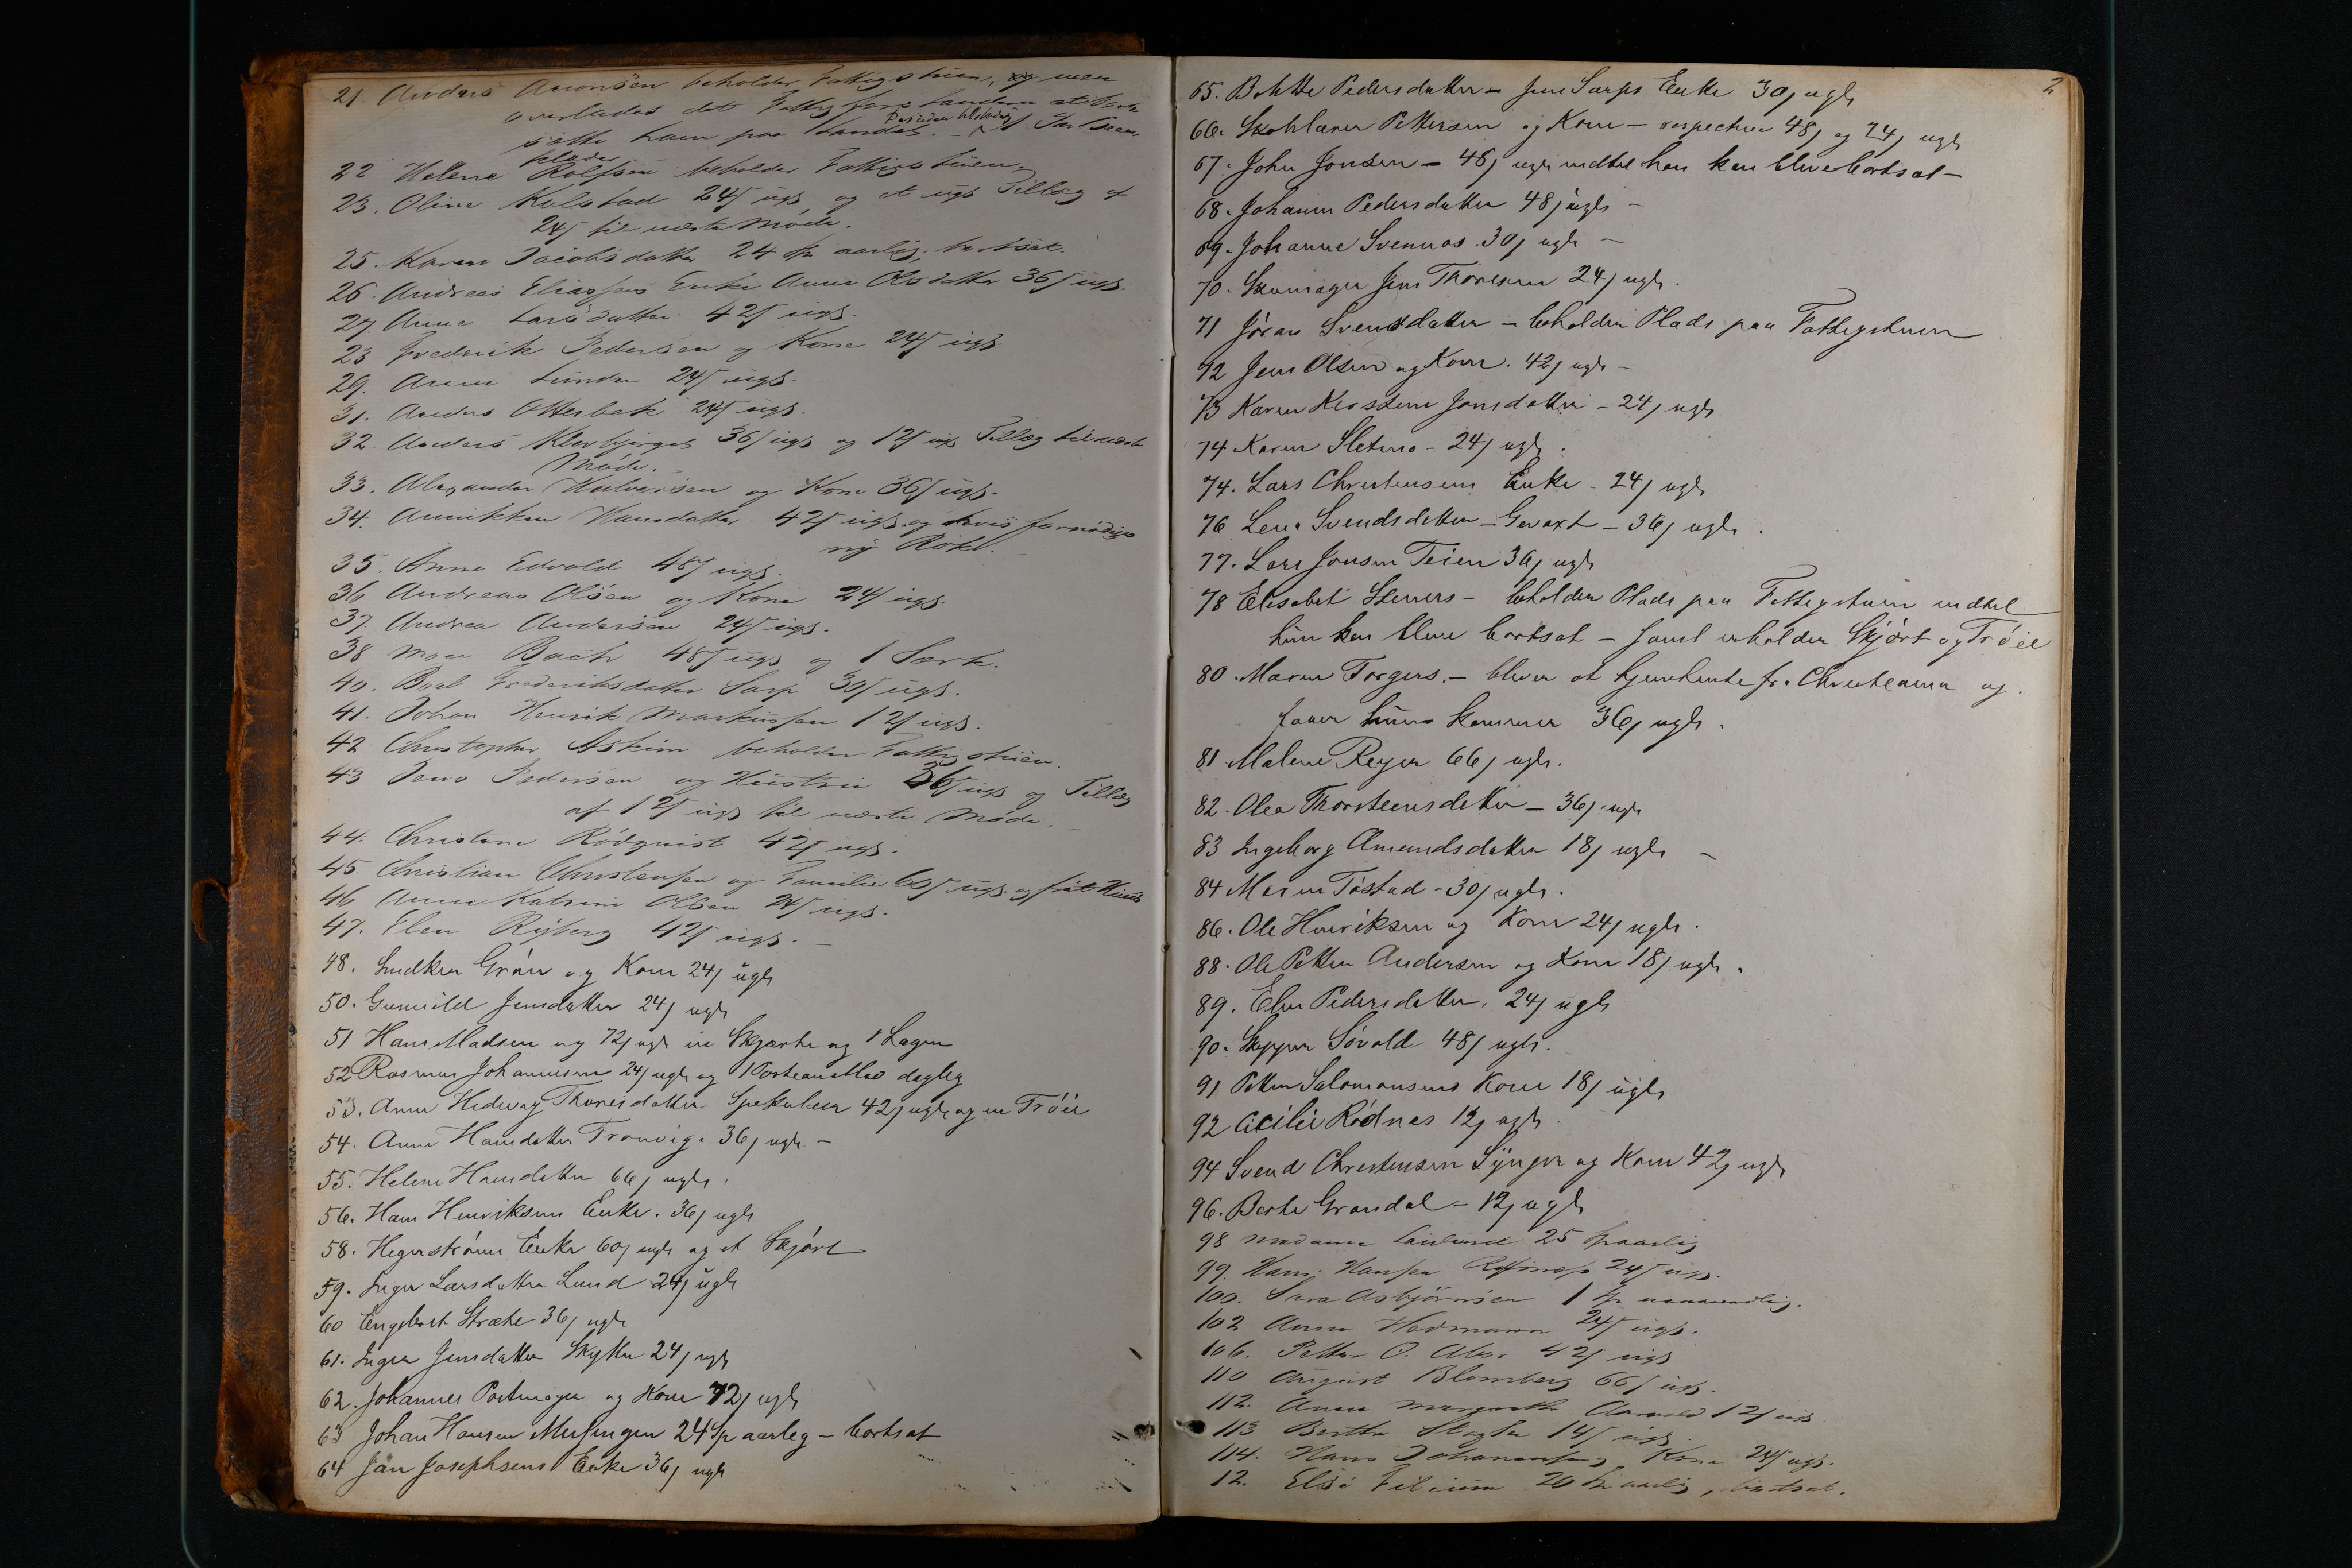 21 Anders Aronsen beholder Fattigstuen, og man
overlades det Fattigforstanderen at bort
sætte ham paa Landet. - 1
Desuden tilstodes
klæder
22 Helene Rolfsen beholder Fattigstuen.
23. Oline Kulstad 24ʃ ugl. og et ugl. Tillæg af
24ʃ til næste Møde.
25. Karen Jacobsdatter 24 Sp aarlig, bortsat.
26. Andreas Eliassens Enke Anne Olsdatter 36ʃ ugl.
27. Anne Larsdatter 42ʃ ugl.
28 Frederik Pedersen og Kone 24ʃ ugl.
29. Anne Lunden 24ʃ ugl.
31. Anders Otterbek 24ʃ ugl.
32. Anders Klevbjerget 36ʃ ugl. og 12ʃ ugl. Tillæg til næste
Møde.
33. Alexander Halvorsen og Kone 36ʃ ugl.
34. Annikken Hansdatter 42ʃ ugl. og hvis fornødiges
ny Kokl.
35. Anne Edvold 48ʃ ugl.
36 Andreas Olsen og Kone 24ʃ ugl.
37. Andrea Andersen 24ʃ ugl.
38 Bach 48ʃ ugl. og 1 Særk.
40. Boel Frederiksdatter Sarp 30ʃ ugl.
41. Johan Henrik Markussen 12ʃ ugl.
42 Christopher Askim beholder Fattigstuen.
43 Jens Pedersen og Hustru 36ʃ ugl. og Tillæg
af 12ʃ ugl. til næste Møde.
44. Christine Rödqvist 42ʃ ugl.
45 Christian Christensen og Familie 60ʃ ugl. og frit Huus
46 Anne Katrine Olsen 24ʃ ugl.
47. Elen Ryberg 42ʃ ugl. -
48. Grøn og Kone 24ʃ ugl.
50. Gunnild Jensdatter 24ʃ ugl.
51 Hans Madsen og 72ʃ ugl. en Skjorte og 1 Lagen
52 Rasmus Johannesen 24ʃ ugl. og 1 Portion Mad daglig
53. Anne Hedevig Thoresdatter Spekulera 42ʃ ugl. og en Trøie
54. Anne Hansdatter Tronvig. 36ʃ ugl. -
55. Helene Hansdatter 66ʃ ugl.
56. Hans Henriksens Enke. 36ʃ ugl.
58. Hegerstrøms Enke 60ʃ ugl. og et Skjørt
59. Inger Larsdatter Lund 24ʃ ugl.
60 Engebret Stræte 36ʃ ugl.
61. Inger Jensdatter Skytter 24ʃ ugl.
62. Johannes Postmager og Kone 72ʃ ugl.
63 Johan Hansen 24 Sp aarlig - bortsat
64 Jan Josephsens Enke 36ʃ ugl.
2
65. Bohtte Pedersdatter - Jens Sarps Enke 30ʃ ugl.
66. Skolelærer Pettersen og Kone - respective 48ʃ og 24ʃ ugl.
67. John Jonsen - 48ʃ ugl. indtil han kan blive bortsat -
68. Johanne Pedersdatter 48ʃ ugl. -
69. Johanne Svennas. 30ʃ ugl. -
70. Skomager Jens Thoresen 24ʃ ugl.
71 Jøran Svendsdatter - beholder Plads paa Fattigstuen
72 Jens Olsen og Kone. 42ʃ ugl. -
73 Karen Kirstine Jonsdatter - 24ʃ ugl.
74 Karen Sletmo - 24ʃ ugl.
74. Lars Christensens Enke - 24ʃ ugl.
76 Lene Svendsdatter - Gevaxt - 36ʃ ugl.
77. Lars Jonsen Teien 36ʃ ugl.
78 Elisabet Steners - beholder Plads paa Fattigstuen indtil
hun kan blive bortsat - samt erholder Skjørt og Trøie
80. Maren Torgers. - bliver at hjemhente fr. Christiania og
faaer hun kommer 36ʃ ugl.
81 Malene Reyer 66ʃ ugl.
82. Olea Thorsteensdatter - 36ʃ ugl.
83 Ingeborg Amundsdatter 18ʃ ugl. -
84 Maren Tøstad - 30ʃ ugl.
86. Ole Henriksen og Kone 24ʃ ugl.
88. Ole Petter Andersen og Kone 18ʃ ugl.
89. Elen Pedersdatter. 24ʃ ugl.
90. Skipper Søvold 48ʃ ugl.
91 Petter Salomonsens Kone 18ʃ ugl.
92 Cicilie Rødnes 12ʃ ugl.
94 Svend Christensen Lynger og Kone 42ʃ ugl.
96. Berte Grandal - 12ʃ ugl.
98 Madame 25 Sp aarlig
99. Hans Hansen 24ʃ ugl.
100. Sara Asbjörnsen 1 Sp maanedlig.
102 Anne Hedmann 24ʃ ugl.
106. Petter O. 42ʃ ugl.
110 August Blomberg 66ʃ ugl.
112. Anne Margrethe 12ʃ ugl.
113 Berthe Slagter 14ʃ ugl.
114. Hans Johannesens Kone 24ʃ ugl.
12. Else 20 Sp aarlig, bortsat.